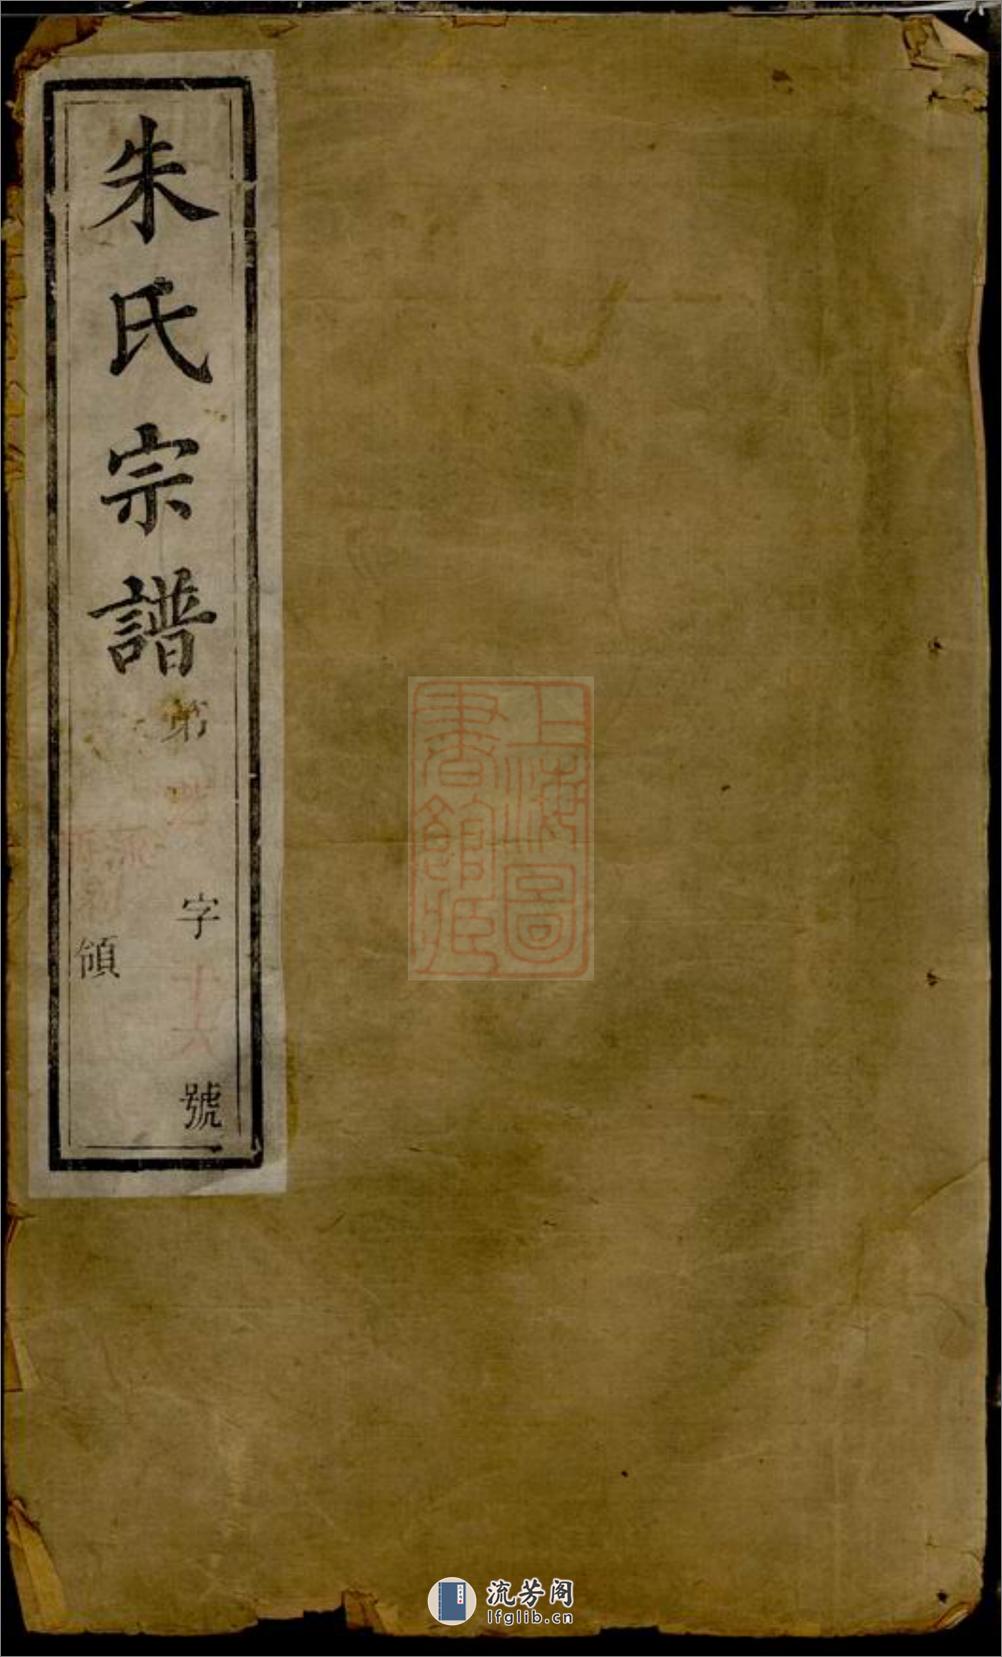 朱氏宗譜
第 字十六號
領
上海圖
書館藏
流芳阁
lfglib.cn